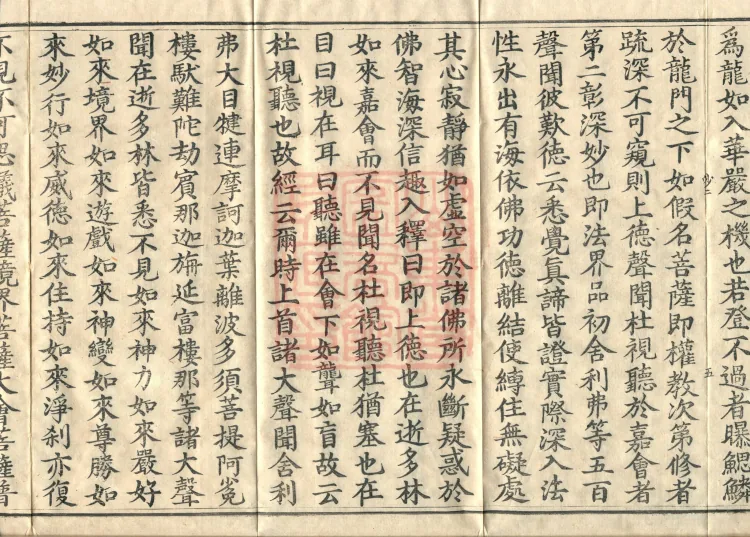 爲龍如入華嚴之機也若登不過者曝鰓鱗
於龍門之下如假名菩薩即權教次第修者
䟽深不可窺則上德聲聞杜視聽於嘉會者
第二彰深妙也即法界品初舍利弗等五百
聲聞彼歎德云悉覺眞諦皆證實際深入法
性永出有海依佛功德離結使縛住無礙處
其心寂靜猶如虛空於諸佛所永斷疑惑於
佛智海深信趣入釋曰即上德也在逝多林
如來嘉會而不見聞名杜視聽杜猶塞也在
目曰視在耳曰聽雖在會下如聾如盲故云
杜視聽也故經云爾時上首諸大聲聞舍利
弗大目犍連摩訶迦葉離波多須菩提阿㝹
樓馱難陀劫賓那迦旃延富樓那等諸大聲
聞在逝多林皆悉不見如來神力如來嚴好
如來境界如來遊戲如來神變如來尊勝如
來妙行如來威德如來住持如來淨刹亦復
不見不可思議菩薩境界菩薩大會菩薩普